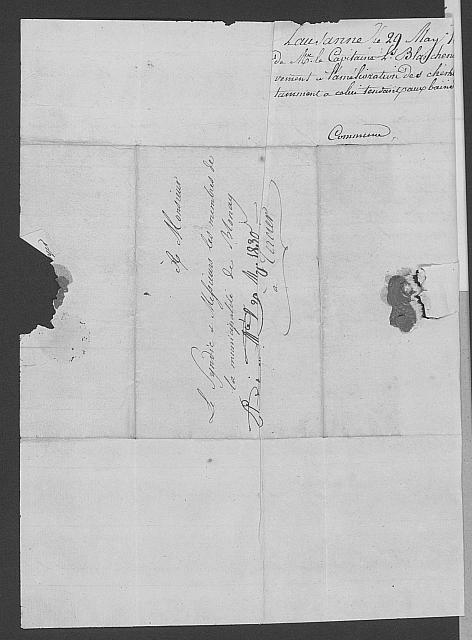 Lausanne le 29 May
de Mr. le Capitaine Ls. Blanchenay
vement à l'amélioration des chemins
tamment à celui tendant aux bains
Commune,
A Monsieur
Le Syndic & Messieurs les membres de
la municipalité de
May 1830
à